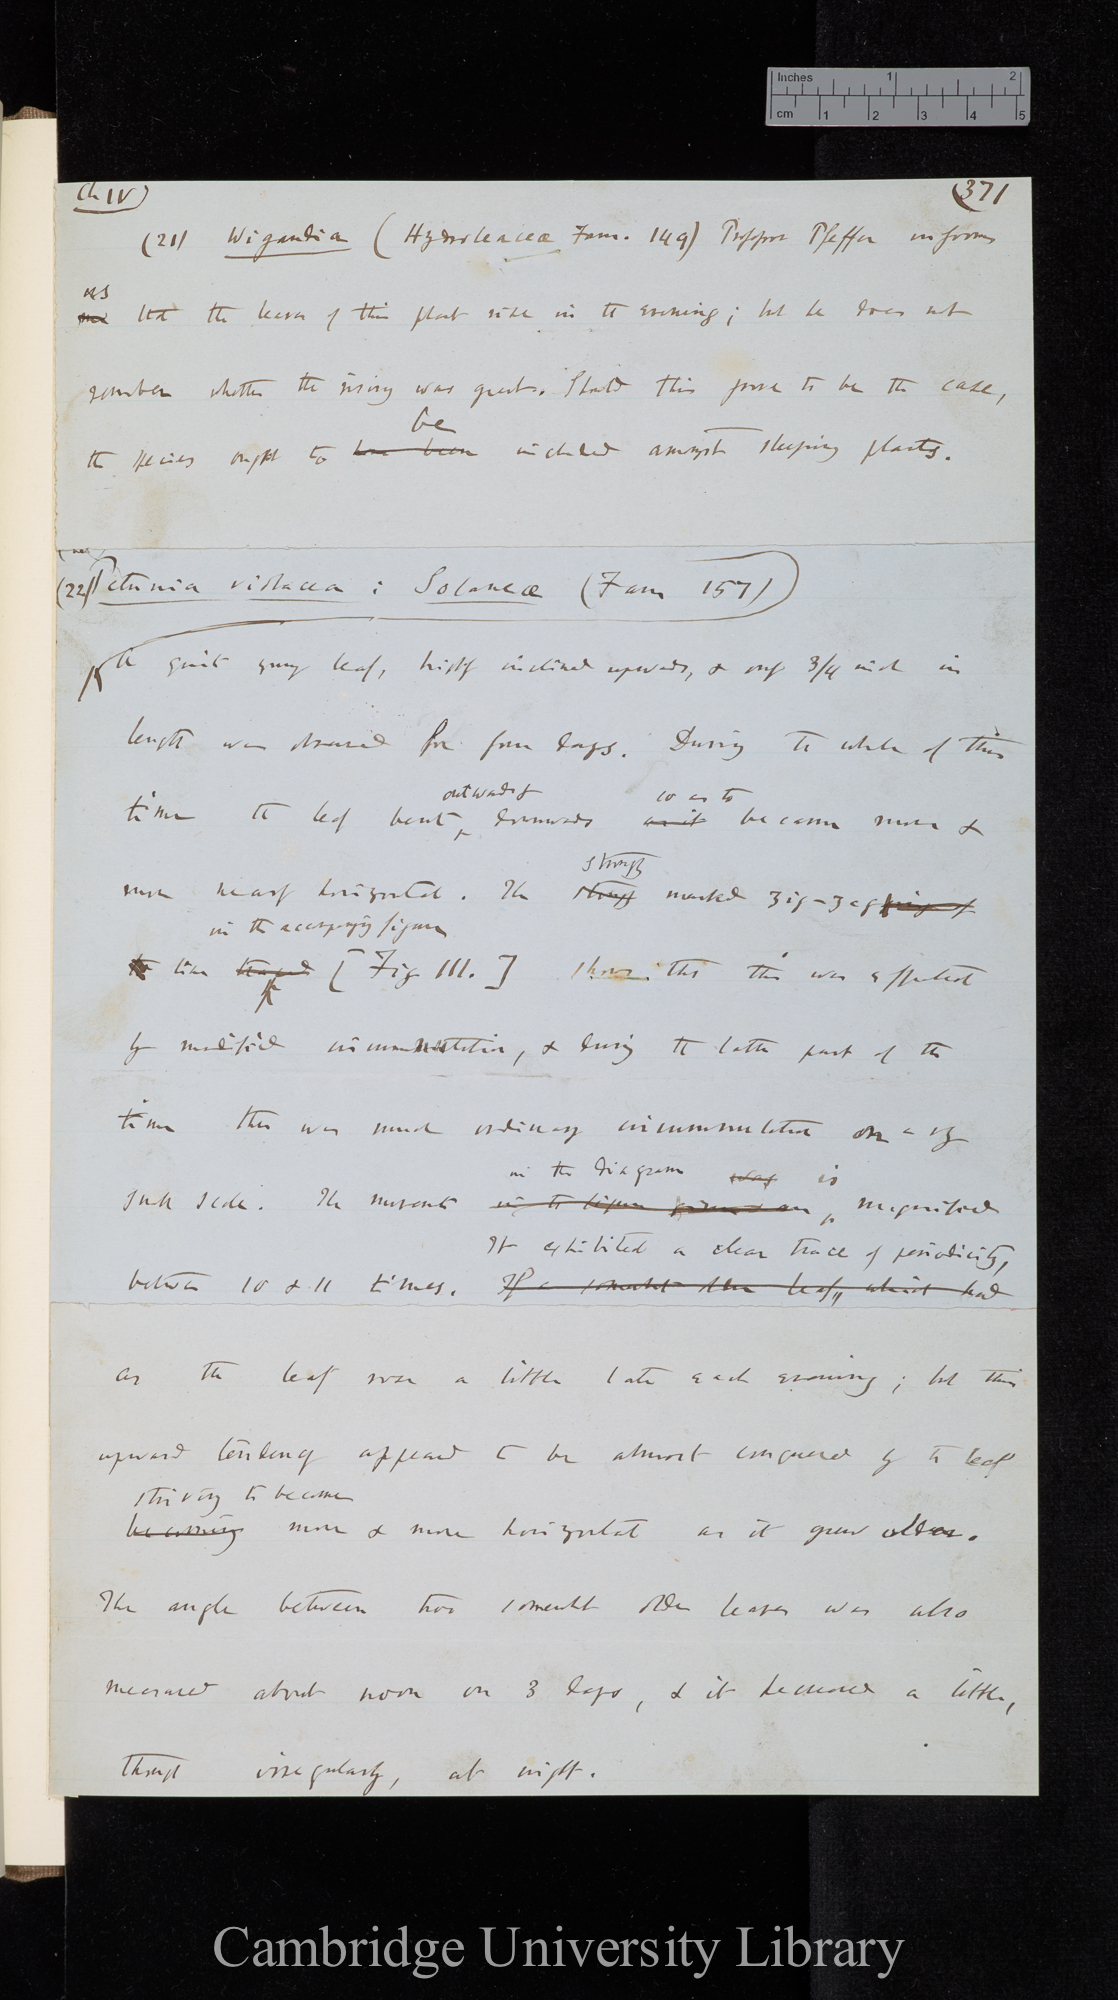 Inches 1 2
cm 1 2 3 4 5
Ch IV)
(37)
(21) Wigandia (Hydroleaceæ Fam. 149) Professor Pfeffer informs
us
me that the leaves of this plant rise in the evening; but he does not
remember whether the rising was great. Should this prove to be the case,
be
the species ought to have been included amongst sleeping plants.
(22) Petunia violacea : Solaneæ (Fam 157)
A quite young leaf, highly inclined upwards, & only 3/4 inch in
length was observed for four days. During the whole of this
outwards & so as to
time the leaf bent downwards as it become more &
strongly
more nearly horizontal. The strongly marked zig-zag
in the accompanying figure
line traced [Fig 111.] shows that this was effected
by modified circumnutation, & during the latter part of the
time there was much ordinary circumnutation on a very
in the diagram was is
small scale. The movement in the figure given magnified
It exhibited a clear trace of periodicity,
between 10 & 11 times. If a somewhat older leaf, which had
as the leaf rose a little late each evening; but this
upward tendency appeared to be almost conquered by the leaf
striving to become
becoming more & more horizontal as it grew older.
The angle between two somewhat older leaves was also
measured about noon on 3 days, & it decreased a little,
though irregularly, at night.
Cambridge University Library